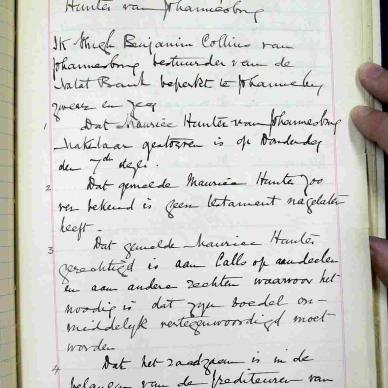 Hunter van Johannesburg
Ik Hugh Benjamin Collins van
Johannesburg bestuurder van de
Natal Bank beperkt te Johannesburg
zweer en zeg
1 Dat Maurice Hunter van Johannesburg
Makelaar gestorven is op Donderdag
den 7de dezer.
2 Dat gemelde Maurice Hunter zoo
ver bekend is geen testament nagelaten
heeft.
3 Dat gemelde Maurice Hunter
gerechtigd is aan Calls op aandeelen
en aan andere rechten waarvoor het
noodig is dat zyn boedel on-
middelyk vertegenwoordigd moet
worden
4 Dat het raadzaam is in de
belangen van de crediteuren van